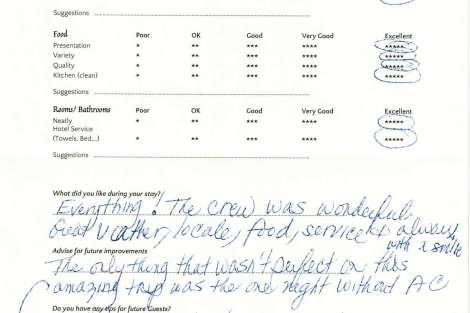 Suggestions
Food Poor OK Good Very Good Excellent
Presentation * ** *** **** *****
Variety * ** *** **** *****
Quality * ** *** **** *****
Kitchen (clean) * ** *** **** *****
Suggestions
Rooms/ Bathrooms Poor OK Good Very Good Excellent
Neatly * ** *** **** *****
Hotel Service
(Towels, Bed...) * ** *** **** *****
Suggestions
What did you like during your stay?
Everything! The crew was wonderful.
Great weather, locale, food, service & always
with a smile
Advise for future improvements
The only thing that wasn't perfect on this
amazing trip was the one night without AC
Do you have any tips for future Guests?